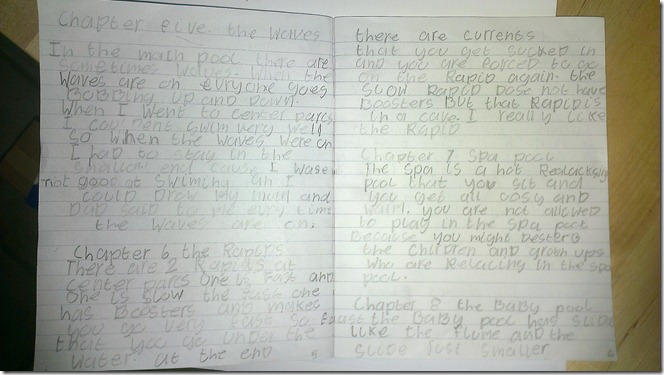 Chapter five the waves
In the main pool there are
sometimes waves. When the
waves are on evryone goes
Bobbing up and down.
When I went to center parcs
I couldent swim very well
so when the waves were on
I had to stay in the
shallow end cause I wase
not good at swiming an I
could drow my mum and
Dad said to me evry time
the waves are on.
Chapter 6 the Rapids
There are 2 Rapids at
center parcs one is fast and
one is slow the fast one
has Boosters and makes
you go very fast so fast
that you go under the
water. at the end
5
there are currents
that you get sucked in
and you are forced to go
on the Rapid again. the
slow Rapid dose not have
Boosters But that Rapid is
in a cave. I really like
the Rapid
Chapter 7 Spa pool
The spa is a hot
pool that you sit and
you get all cosy and
warm. you are not allowed
to play in the spa pool
Because you might
the children and grown ups
who are Relacing in the spa
pool.
Chapter 8 the Baby pool
the Baby pool has slide
like the flume and the
slide just smaller
6